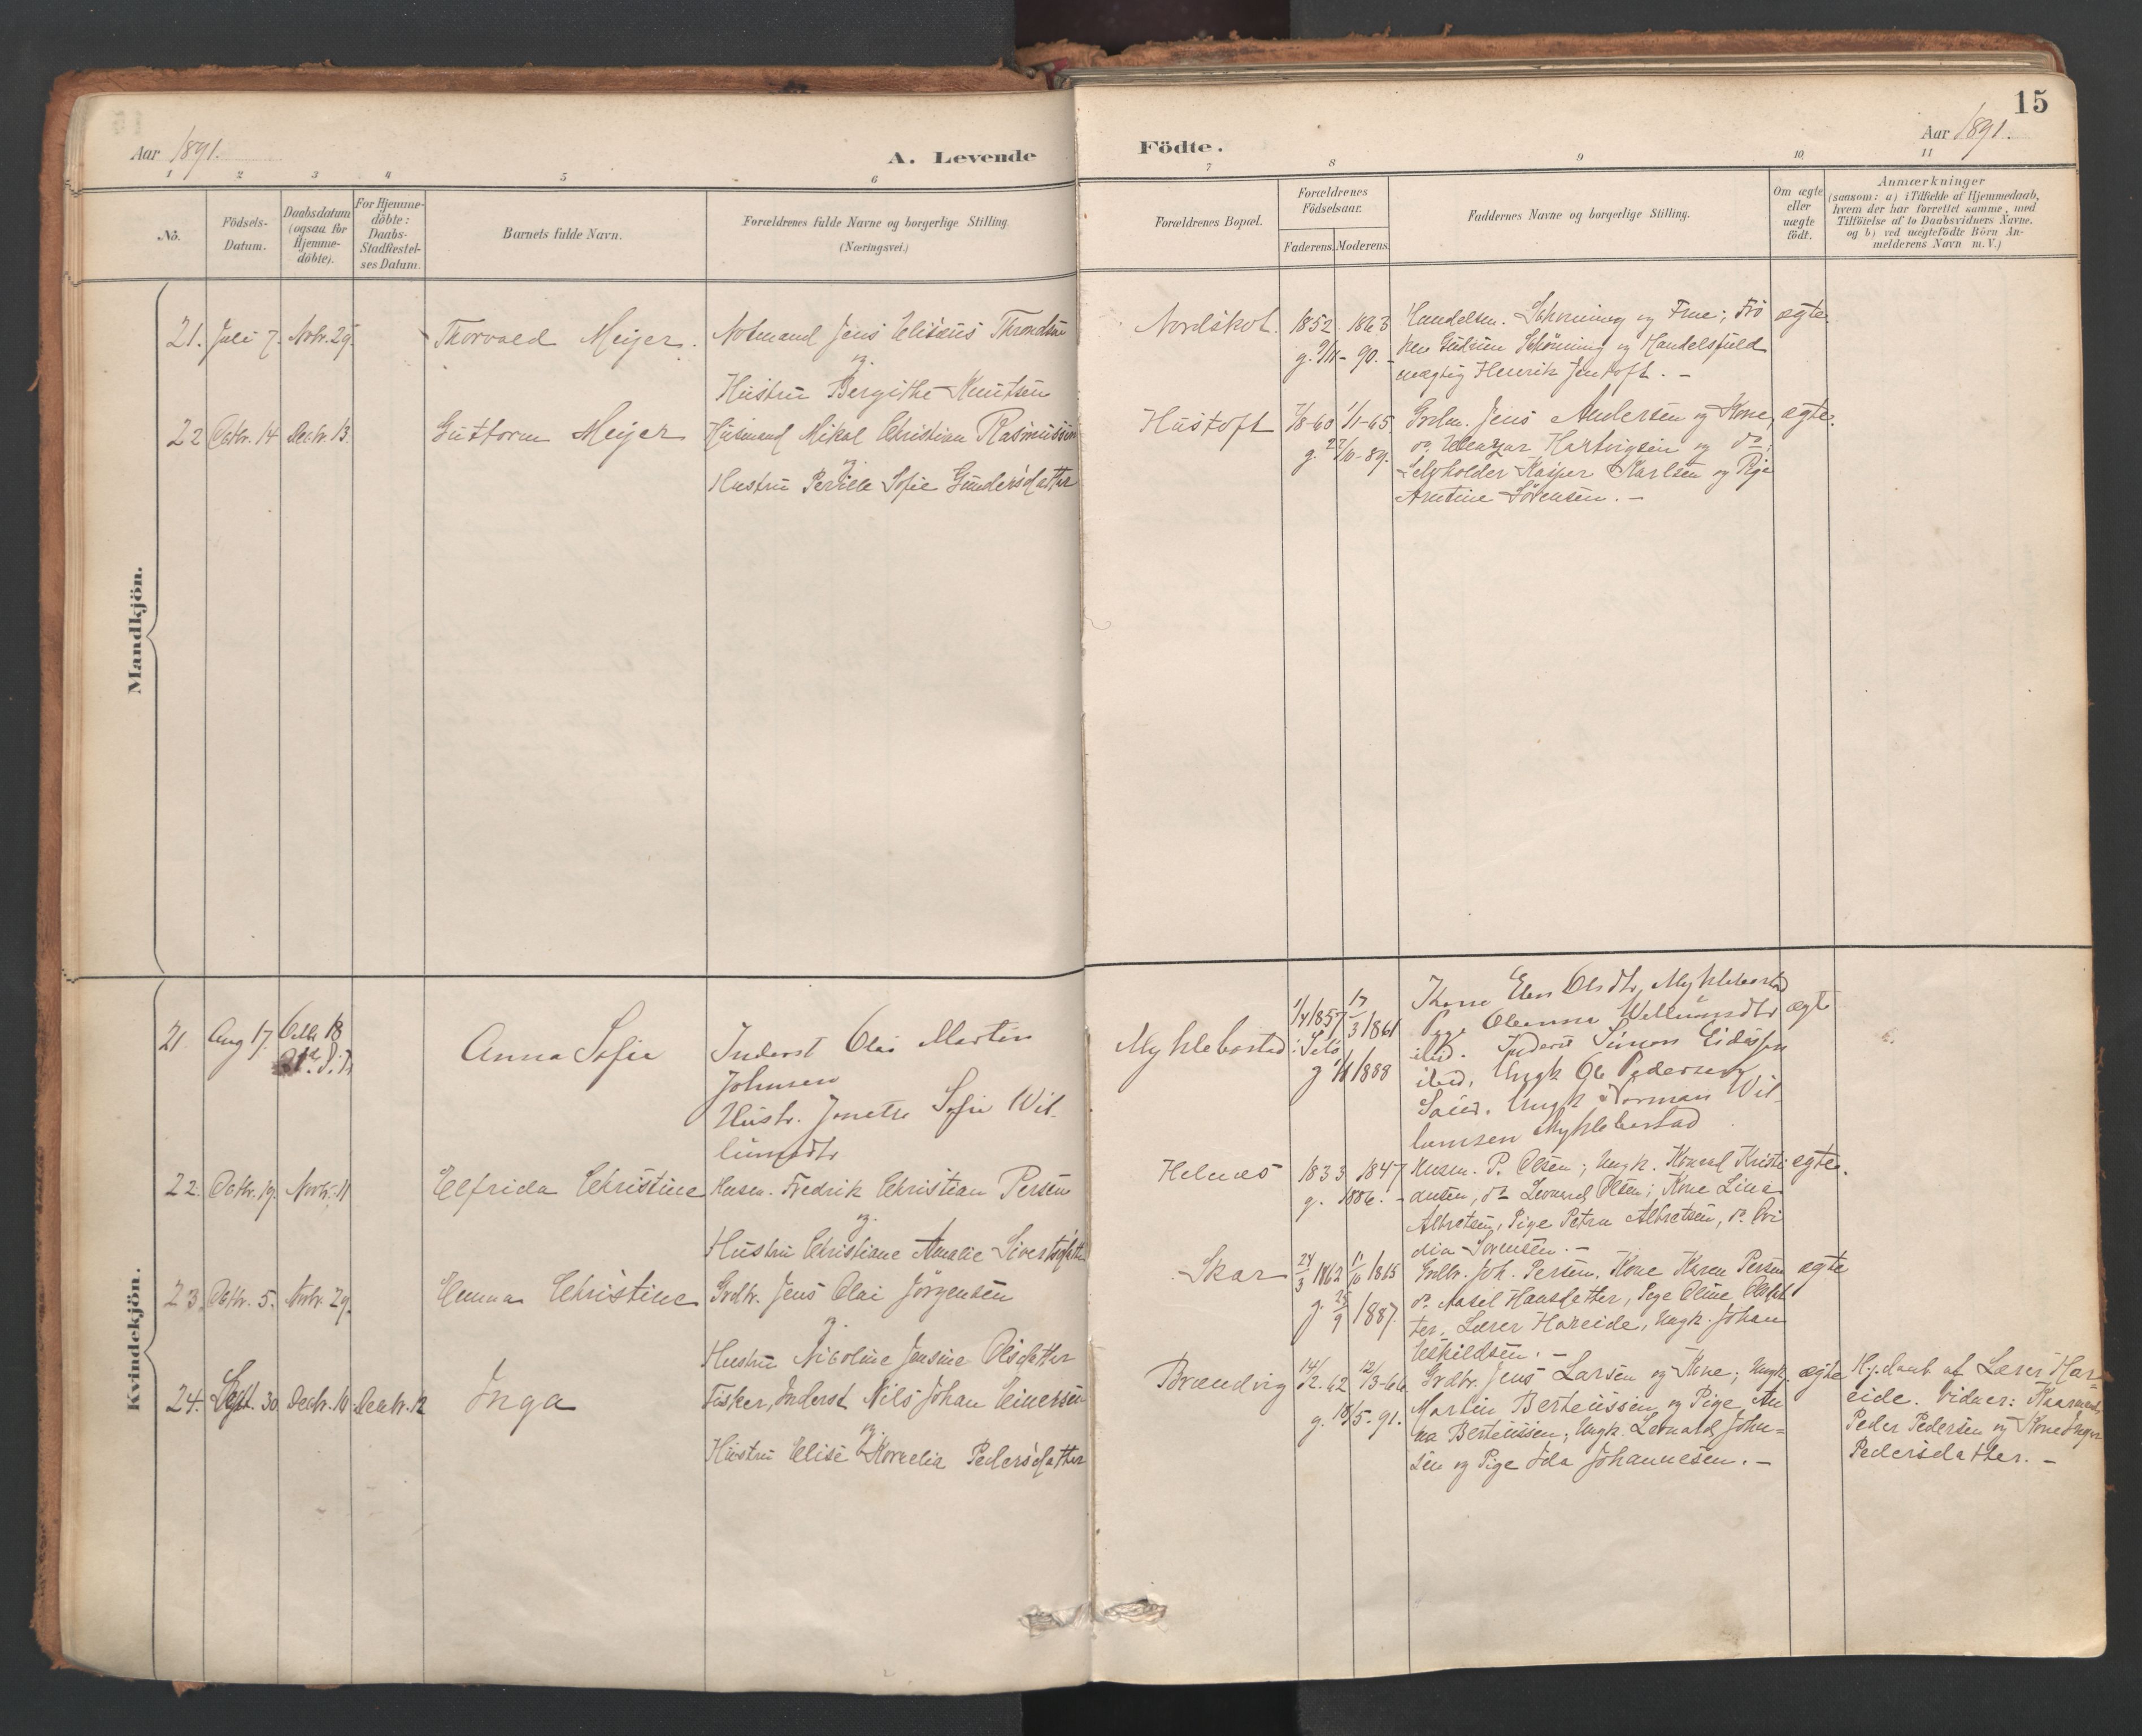 15
Aar 1891.
A. Levende
Födte.
Aar 1891.
1 2 3 4 5 6 7 8 9 10 11
No.
Födsels-
Datum.
Daabsdatum
(ogsaa for
Hjemme-
döbte).
For Hjemme-
döbte:
Daabs-
Stadfæstel-
ses Datum.
Barnets fulde Navn.
Forældrenes fulde Navne og borgerlige Stilling
(Næringsvei.)
Forældrenes Bopæl.
Forældrenes
Födselsaar.
Faderens. Moderens.
Faddernes Navne og borgerlige Stilling.
Om ægte
eller
uægte
födt.
Anmærkninger
(saasom: a) i Tilfælde af Hjemmedaab,
hvem der har forrettet samme, med
Tilföielse af to Daabsvidners Navne,
og b) ved uægtefödte Börn An-
melderens Navn m. V.)
Mandkjön.
21. Juli 7. Novbr. 29. Thorvald Meijer.
Notmand Jens Eliseus Throndsen
og
Hustru Bergithe Knutsen
Nordskot. 1852. 1863
g. 9/11 - 90. -
Handelsm. Schønning og Frue; Frö
ken Gudrun Schönning og Handelsfuld
mægtig Henrik Jentoft. -
ægte.
22 Octbr. 14 Decbr. 13. Guttorm Meijer
Husmand Mikal Christian Rasmussen
og
Hustru Pernille Sofie Gundersdatter
Hustoft 7/8-60 1/1-65.
g. 27/10-89.
Grdbr. Jens Andersen og Kone,
do Eleazar Hartvigsen og do;
Selvholder Kasper Karlsen og Pige
Arntine Sörensen. -
ægte.
Kvindekjön.
21 Aug 17. Octbr 18
Anna Sofie
Inderst Olai Martin
Johnsen
Hustr. Jonette Sofie Wil-
lumsdtr
Myklebostad 1/4 1857 17/3 1861
g 1888
Kone Elen Olsdtr, Myklebostad
Pige Oleanna Willumsdtr
ibid. Inderst Simon Eidissen
ibid, Ungk Ole Pedersen
Ungk Norman Wil-
lumsen Myklebostad
ægte
22. Octbr. 19. Novbr. 11 Elfrida Christine
Husm. Fredrik Christian Persen
og
Hustru Christiane Amalie Sivertsdatter
Helnæs 1833 1847
g. 1886. -
Husm. P. Olsen; Ungk. Konrad Kristi
ansen, do Leonard Olsen; Kone Lina
Albretsen, Pige Petra Albretsen, do Ovi
dia Sörensen. -
ægte.
23. Octbr. 5. Novbr. 29. Emma Christine
Grdbr. Jens Olai Jörgensen
og
Hustru Nicoline Jensine Olsdatter
Skar 24/3 1862 11/10 1865
g. 25/9 1887.
Grdbr. Joh. Persen. Kone Karen Persen
do Aasel Hansdatter, Pige Oline Olsdat
ter, Lærer Hareide, Ungk. Johan
Eskildsen. -
ægte
24. Sept. 30. Decbr. 10. Decbr. 12 Inga
Fisker, Inderst Nils Johan Einersen
og
Hustru Elise Kornelia Pedersdatter
Brændvig 14/2. 62 12/3-66
g. 18/5-91.
Grdbr. Jens Larsen og Kone; Ungk.
Martin Berteussen og Pige An
na Berteussen; Ungk. Leonard John=
sen og Pige Ida Johannesen. -
ægte
Hj. daab. af Lærer Har=
eide. Vidner: Kaarmand
Peder Pedersen og Kone Inger
Pedersdatter. -